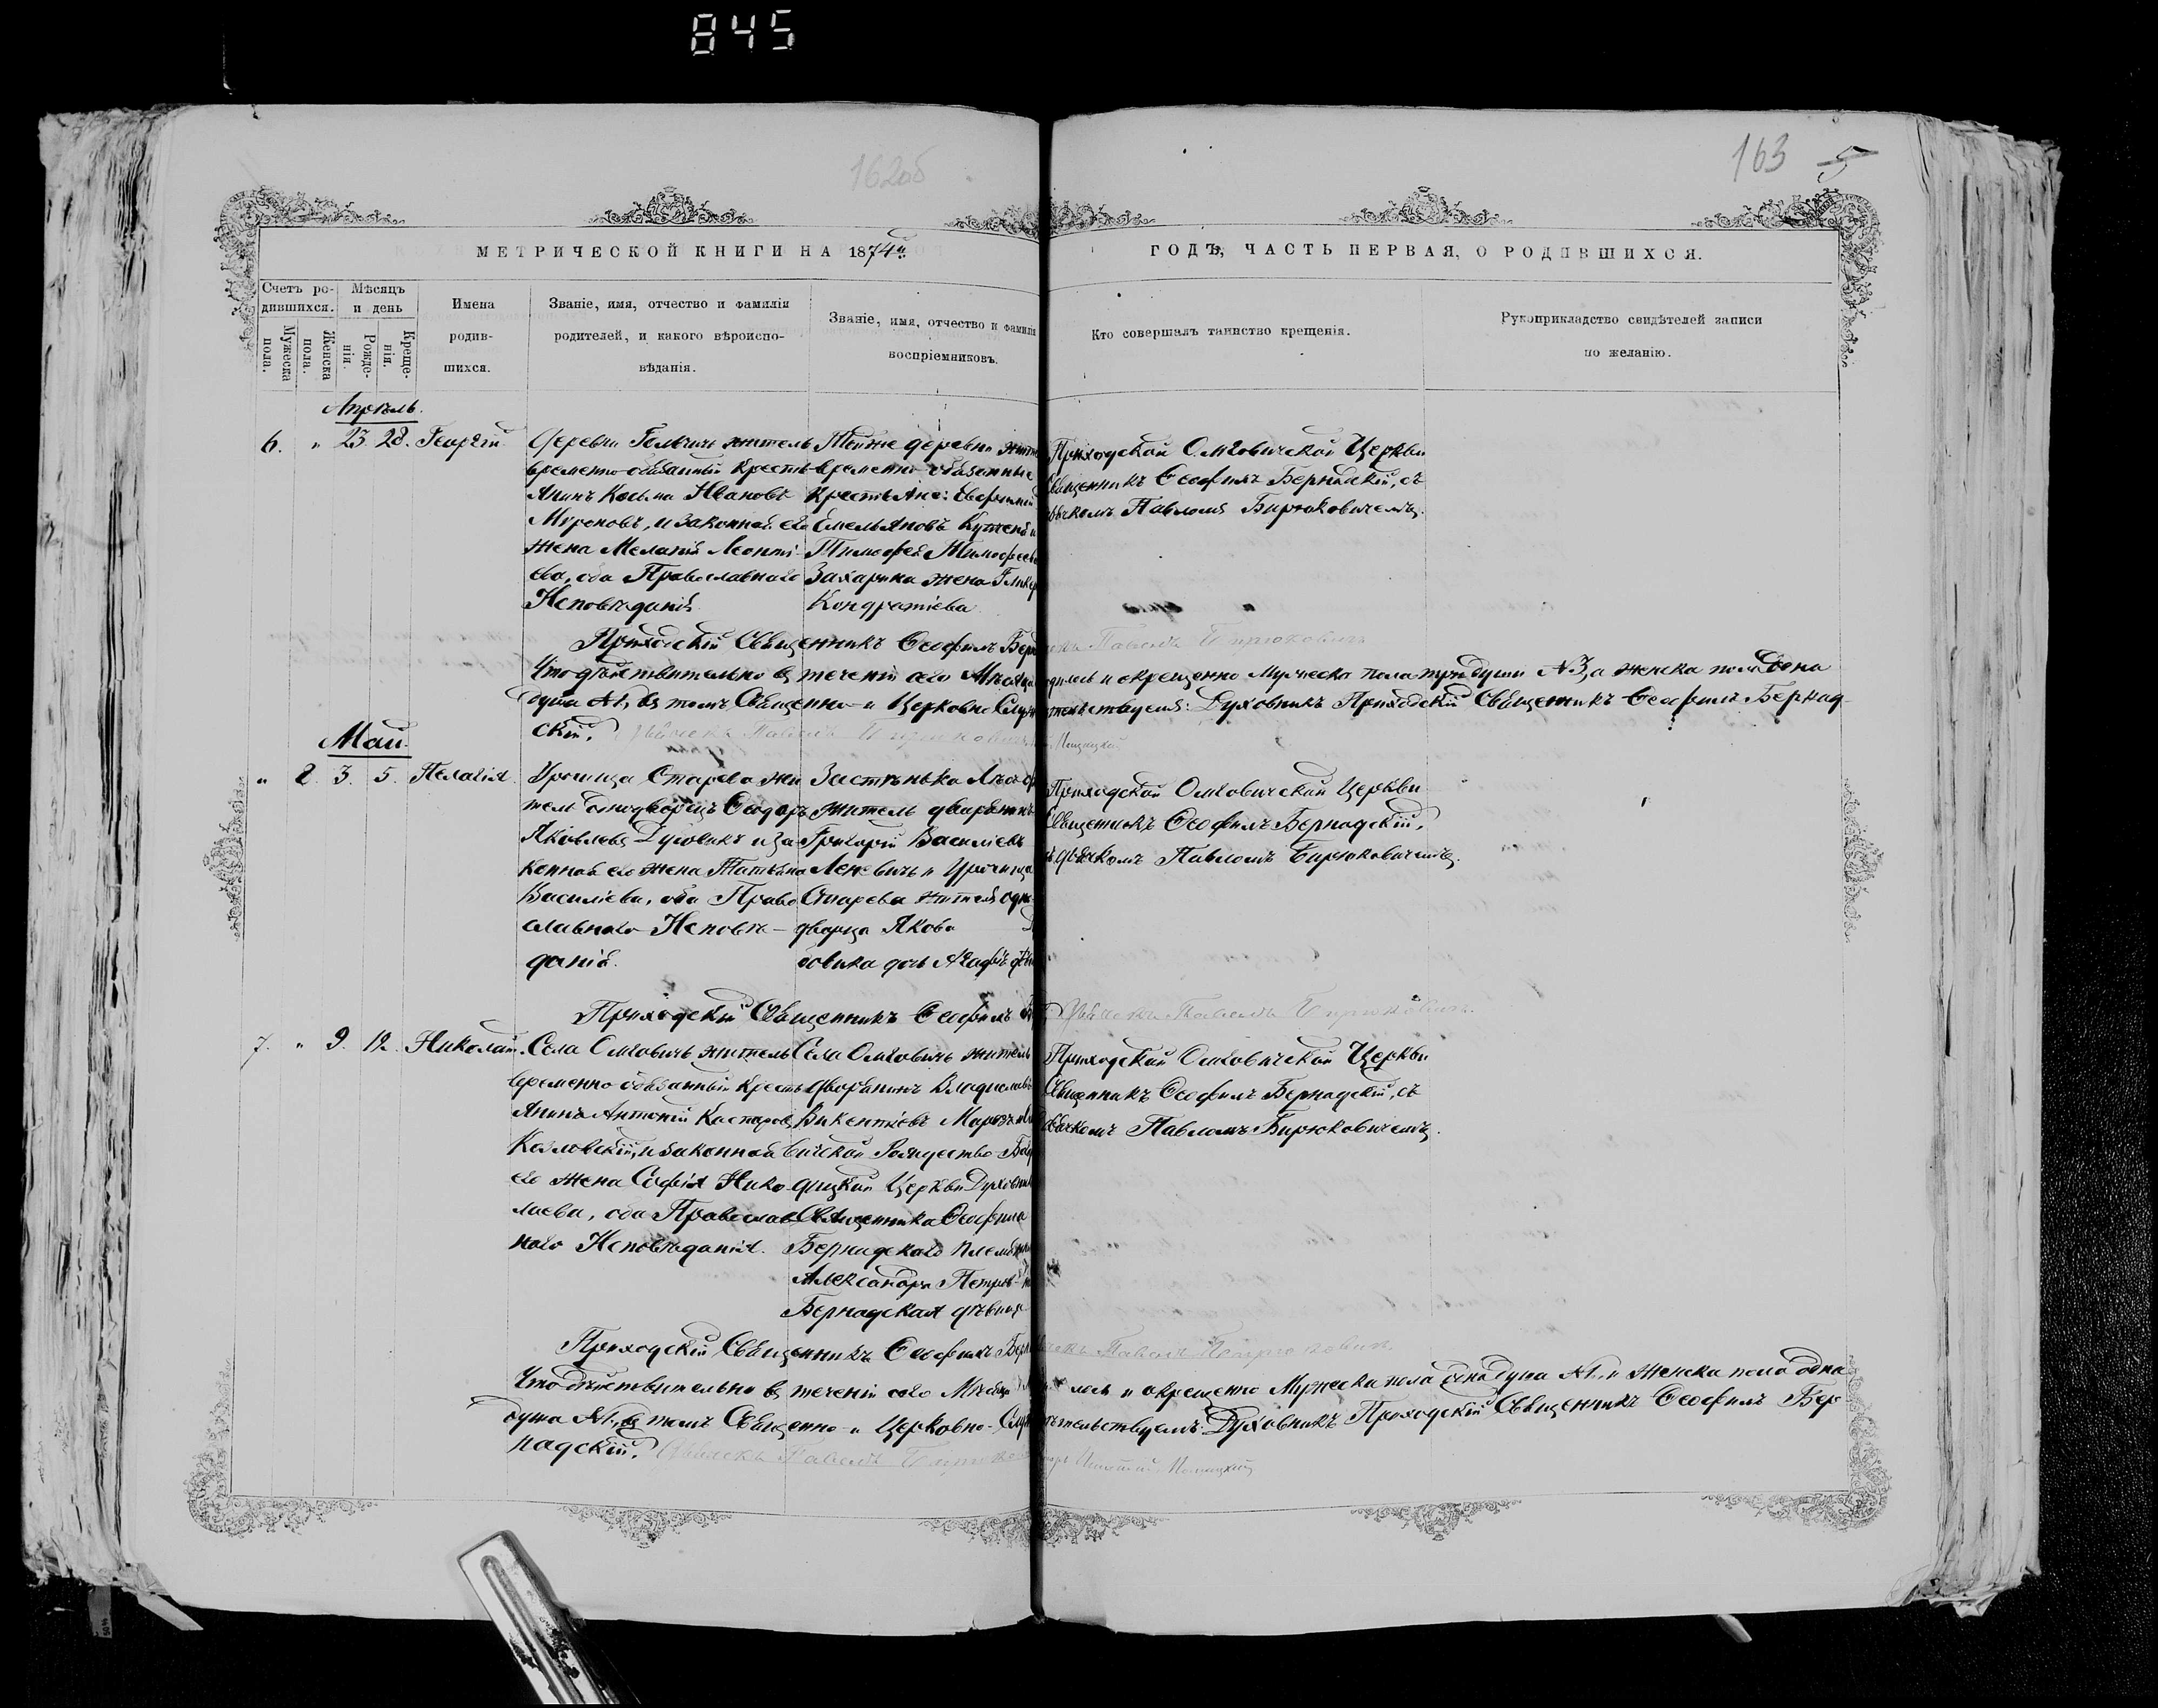 845
162об
163 5
МЕТРИЧЕСКОЙ КНИГИ НА 1874й
ГОДЪ, ЧАСТЬ ПЕРВАЯ, О РОДИВШИХСЯ.
Счетъ ро-
дившихся.
Мѣсяцъ
и день
Мужеска
пола.
Женска
пола.
Рожде-
нія.
Креще-
нія.
Имена
родив-
шихся.
Званіе, имя, отчество и фамилія
родителей, и какого вѣроиспо-
вѣданія.
Званіе, имя, отчество и фамилія
воспріемниковъ.
Кто совершалъ таинство крещенія.
Рукоприкладство свидѣтелей записи
по желанію.
Апрѣль.
6. " 23 28. Георгій
Деревни житель
временно-обязанный кресть-
янинъ Косьма Ивановъ
Мироновъ, и законная его
жена Меланія Леонті-
ева, оба Православнаго
Исповѣданія.
Тойже деревни
временно обязанные
крестьяне:
Емельяновъ
Тимофей Тимофеевъ
Захарика жена
Кондратіева
Приходской Омговичской Церкви
Священникъ Ѳеофилъ Бернадскій, съ
Павломъ Бирюковичемъ.
Приходскій Священникъ Ѳеофилъ
Павелъ Бирюковичъ
Что дѣйствительно въ теченіи сего Мѣсяца и окрещено Мужеска пола три души №3, а женска пола одна
душа №1, въ томъ Священно- и Церковно Духовникъ Приходскій Священникъ Ѳеофилъ Бернад-
скій. Павелъ Бирюковичъ
Май.
" 2. 3. 5. Пелагія
Урочища Старева жи-
тель однодворецъ Ѳеодоръ
Яковлевъ и за-
конная его жена Татьяна
Василіева, оба Право-
славнаго Исповѣ-
данія.
Застѣнка
житель дворянинъ
Григорій Василіевъ
и Урочища
Старева жителя одно-
дворца Якова
дочь Агафія
Приходской Омговичской Церкви
Священникъ Ѳеофилъ Бернадскій,
съ дьячкомъ Павломъ Бирюковичемъ.
Приходскій Священникъ Ѳеофилъ
Дьячекъ Павелъ Бирюковичъ.
7. " 9. 12. Николай.
Села Омговичъ житель
временно-обязанный кресть-
янинъ Антоній Каспаровъ
Козловскій, и законная
его жена Софія Нико-
лаева, оба Православ-
наго Исповѣданія.
Села Омговичъ житель
дворянинъ Владиславъ
Викентіевъ
Рождество-
Церкви Духовника
Священника Ѳеофила
Бернадскаго
Александра Петрова
Бернадская дѣвица
Приходской Омговичской Церкви
Священникъ Ѳеофилъ Бернадскій, съ
дьячкомъ Павломъ Бирюковичемъ.
Приходскій Священникъ Ѳеофилъ
Павелъ Бирюковичъ
Что дѣйствительно въ теченіи сего Мѣсяца и окрещено Мужеска пола одна душа №1, и Женска пола одна
душа №1, въ томъ Священно- и Церковно- Духовникъ Приходскій Священникъ Ѳеофилъ Бер-
надскій. Дьячекъ Павелъ